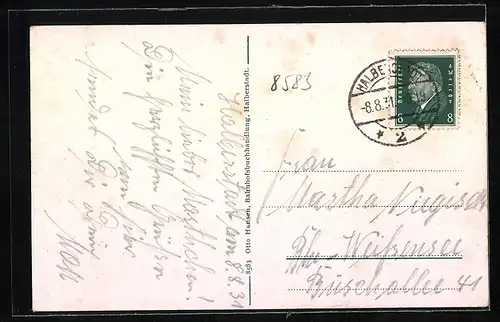 Halberstadt am 8.8.31
Mein liebes Marthchen!
Die herzlichsten Grüßen
von hier
sendet Dir
Max
8583 Otto Hansen, Bahnhofsbuchhandlung, Halberstadt.
8583
HALBERSTADT
-8.8.31
* 2
Deutsches Reich
8 8
Frau
Martha
Bln.-Weißensee
Buschallee 41